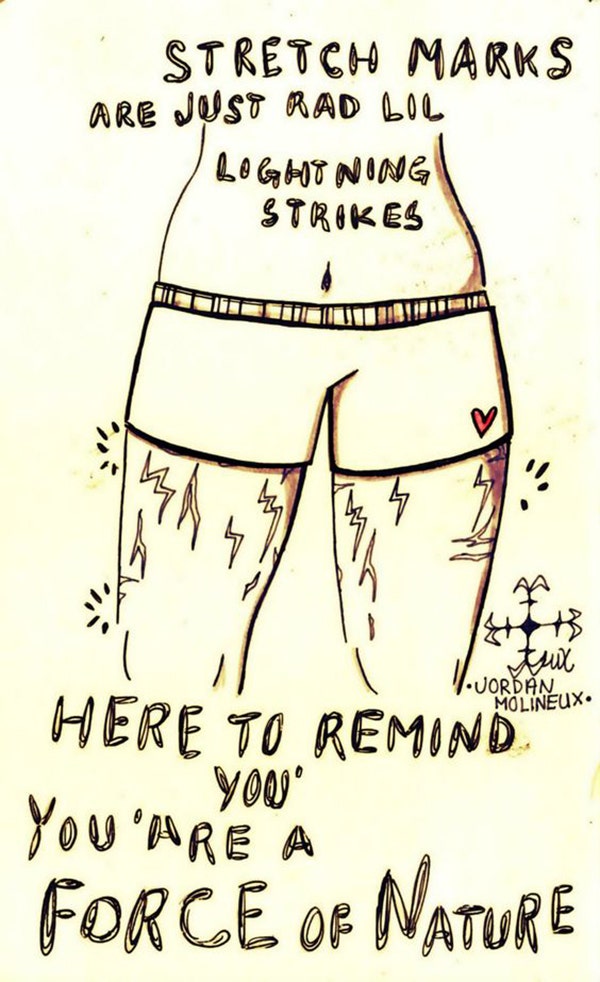 STRETCH MARKS
ARE JUST RAD LIL
LIGHTNING
STRIKES
•JORDAN
MOLINEUX•
HERE TO REMIND
YOU'
YOU 'ARE A
FORCE OF NATURE